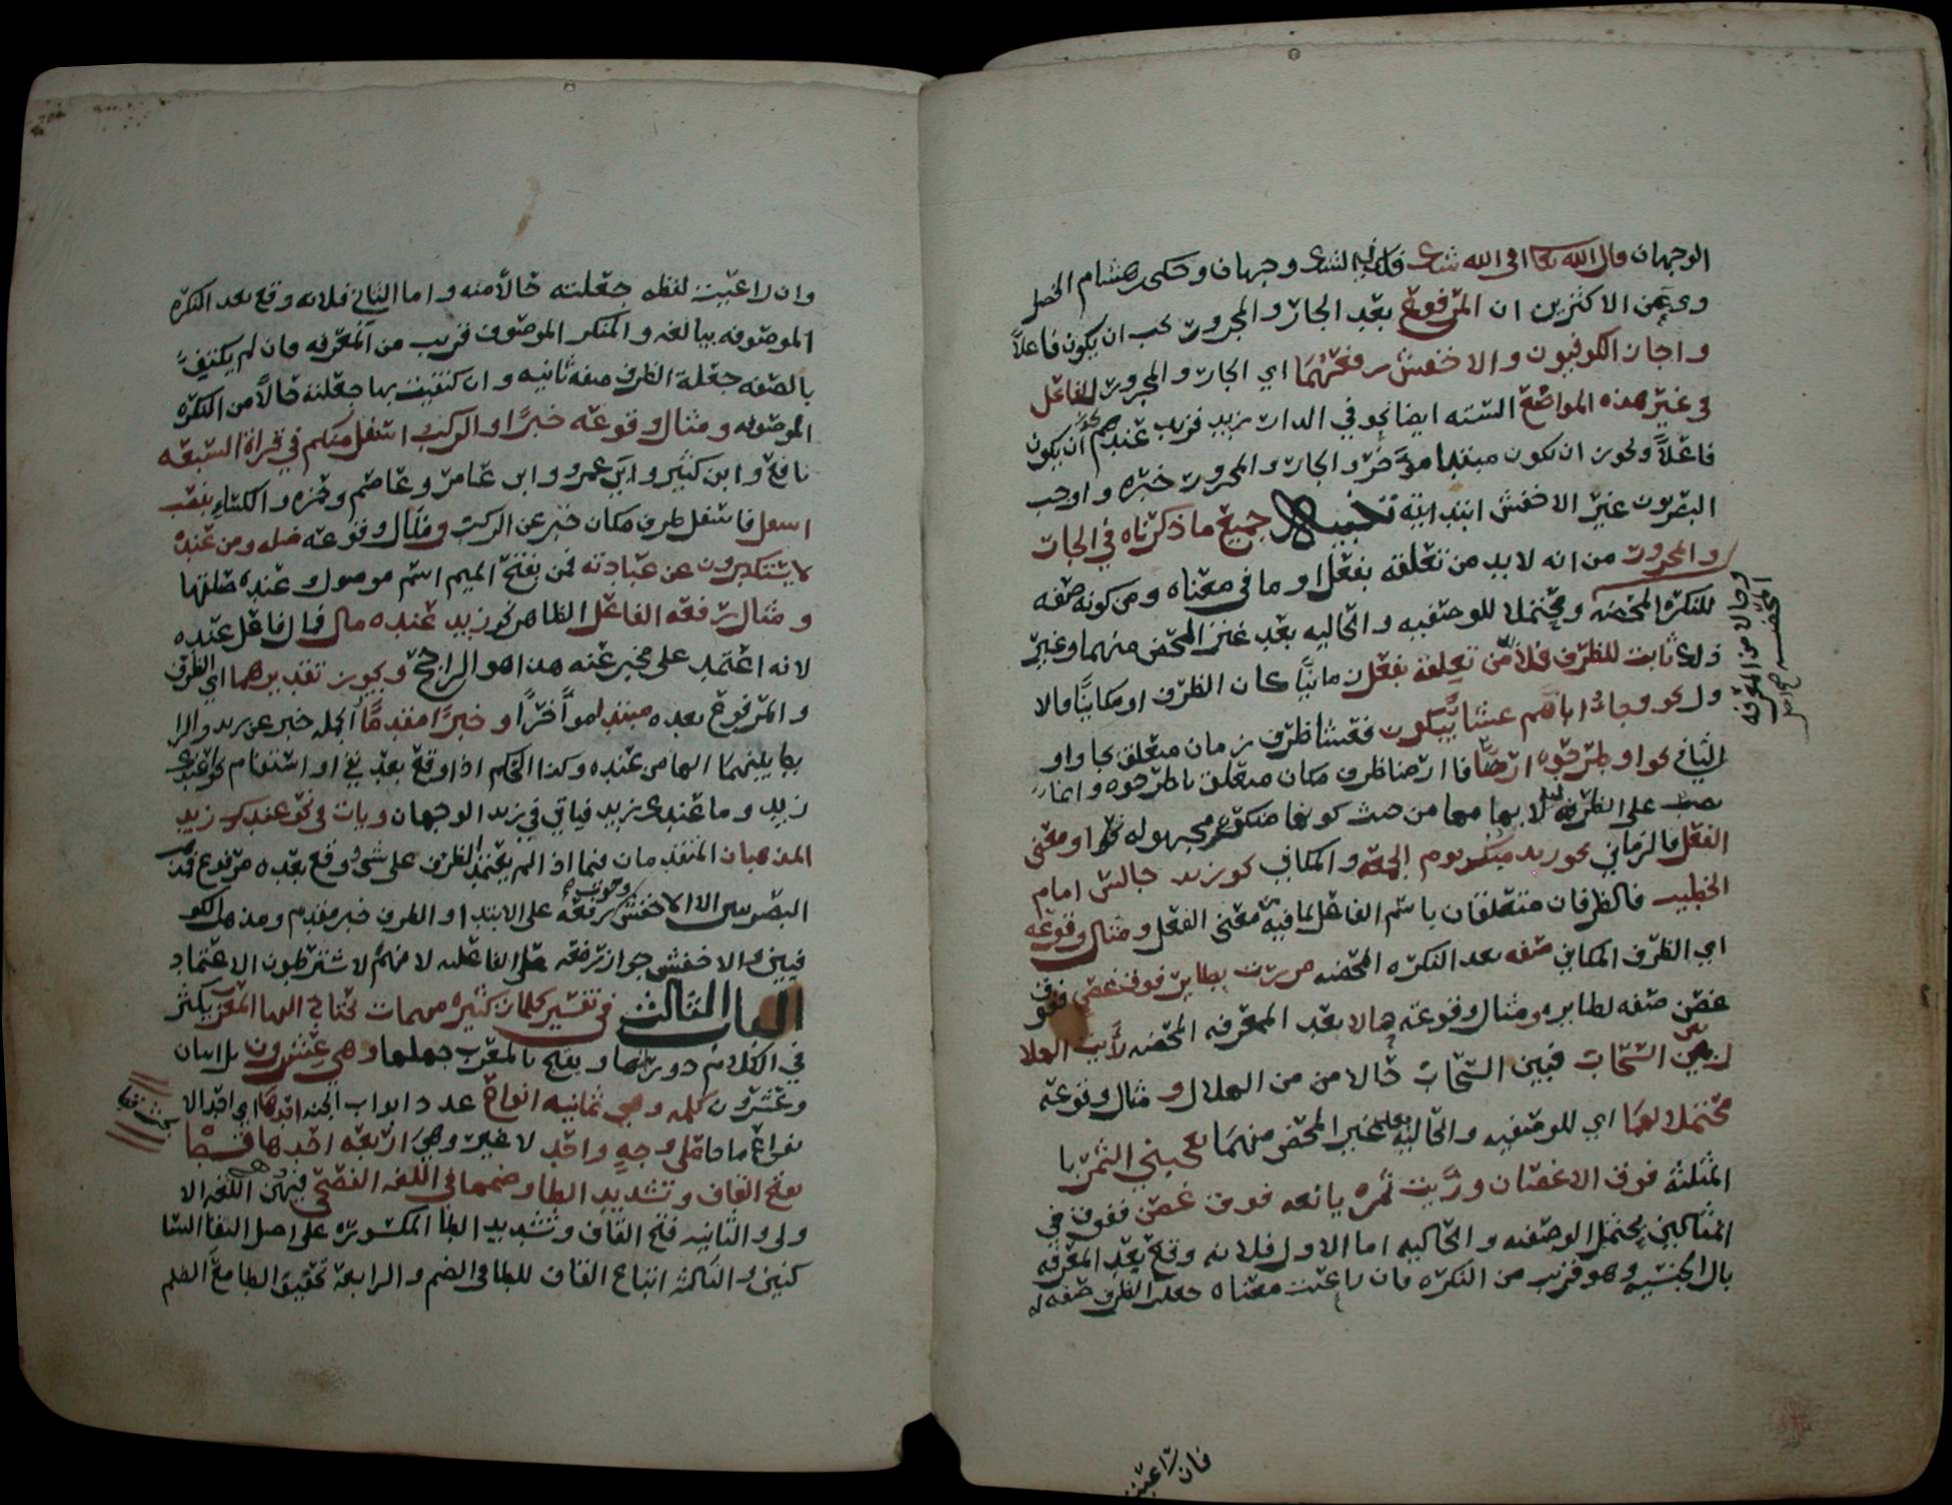 الوجهان قال الله تعا افى الله شك فلك فيه لشك وجهان وحكى ابن هشام الخضر
وى عن الاكثرين ان المرفوع بعد الجار والمجرور يجب ان يكون فاعلاً
واجاز الكوفيون والاخفش رفعهما اي الجار والمجرور للفاعل
في غير هذه المواضع السته ايضا نحو في الدار زيد فزيد عندهم يجوز ان يكون
فاعلاً ويجوز ان يكون مبتدا مؤخر والجار والمجرور خبره واوجب
البصريون غير الاخفش ابتدائية تنبيه جميع ما ذكرناه في الجار
والمجرور من انه لا بد من تعلقه بفعل او ما في معناه ومن كونه صفه
للنكره المحضه ومحتملا للوصفيه والحاليه بعد غير المحض منهما وغير
وحالا من المعرفه المحضه صح اصل
ذلك ثابت للظرف فلا بد من تعلقه بفعل زمانيًا كان الظرف او مكانيًا فالا
ول نحو وجاؤا اباهم عشا يبكون فعشا ظرف زمان متعلق بجاوا و
الثاني نحو او طرحوه ارضًا فارضا ظرف مكان متعلق باطرحوه وانما
نصب على الظرفيه لابهامها من حيث كونها منكوره مجهوله او معنى
الفعل فالزماني نحو زيد مبكر يوم الجمعه والمكاني نحو زيد جالس امام
الخطيب فالظرفان متعلقان باسم الفاعل لما فيه من معنى الفعل ومثال وقوعه
اي الظرف المكاني صفه بعد النكره المحضه مررت بطاير فوق غصن ففوق
غصن صفه لطاير ومثال وقوعه حالا بعد المعرفه المحضه رأيت الهلا
ل بين السحاب فبين السحاب حالا من الهلال ومثال وقوعه
محتملا لهما اي للوصفيه والحاليه بعد غير المحض منهما يعجبني الثمر با
المثلثة فوق الاغصان ورأيت ثمره يانعه فوق غصن ففوق في
المثالين يحتمل الوصفيه والحاليه اما الاول فلانه وقع بعد المعرفه
بال الجنسيه وهو قريب من النكره فان راعيت معناه جعلت الظرف صفه له
فان راعيت
وان راعيت لفظه جعلته حالاً منه واما الثاني فلانه وقع بعد النكره
الموصوفه بيانعه والمنكر الموصوف قريب من المعرفه فان لم يكتف
بالصفه جعلة الظرف صفه ثانيه وان كتفيت بها جعلته حالاً من النكره
الموصوفه ومثال وقوعه خبرًا والركب اسفل منكم في قراة السبعه
نافع وابن كثير وابي عمرو وابن عامر وعاصم وحمزه والكساي بنصب
اسفل فاسفل ظرف مكان خبر عن الركب ومثال وقوعه صله ومن عنده
لا يستكبرون عن عبادته فمن بفتح الميم اسم موصول وعنده صلتها
ومثال رفعه الفاعل الظاهر نحو زيد عنده مال فمال فاعل عنده
لانه اعتمد على مخبر عنه هذا هو الراجح ويجوز تقديرهما اي الظرف
والمرفوع بعده مبتدا مؤخرًا وخبرًا مقدمًا الجمله خبر عن زيد والرا
بط بينهما الها من عنده وكذا الحكم اذا وقع بعد نفي او استفهام نحو اعندك
زيد وما عندك زيد فياتي في زيد الوجهان ويات في نحو عندك زيد
المذهبان المتقدمان فيما اذا لم يعتمد الظرف على شي ووقع بعده مرفوع فمذهب
البصريين الا الاخفش وجوب رفعه على الابتدا والظرف خبر مقدم ومذهب الكو
فيين والاخفش جواز رفعه على الفاعليه لانهم لا يشترطون الاعتماد
الباب الثالث في تفسير كلمات كثيره مهمات يحتاج اليها المعرب يكثر
في الكلام دورانها ويقبح بالمعرب جهلها وهي عشرون بل اثنان
وعشرون كلمه وهي ثمانيه انواع عدد ابواب الجنه احدها اي احد الا
نواع ما جا على وجه واحد لا غير وهي اربعه احدها قط
بفتح القاف وتشديد الطا وضمها في اللغه الفصحى فيهن وهي اللغه الا
ولى والثانيه فتح القاف وتشديد الطا المكسوره على اصل التقا السا
كنين والثالثه اتباع القاف للطا في الضم والرابعة تخفيف الطا مع الضم